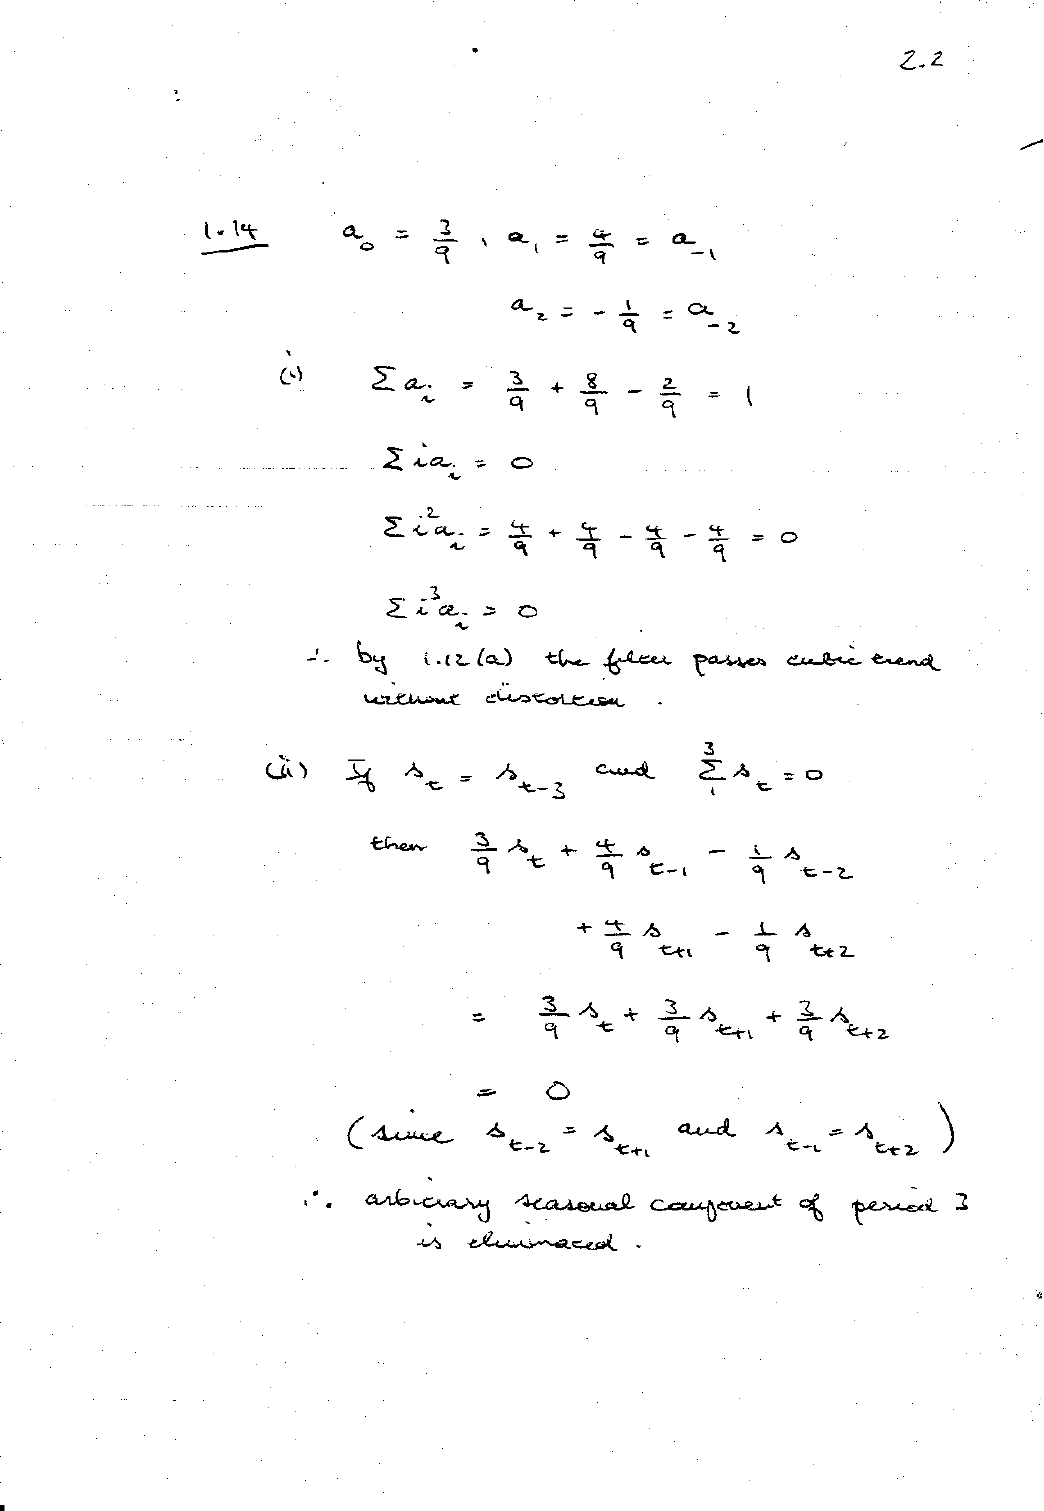 2.2
1.14 a_0 = 3/9, a_1 = 4/9 = a_{-1}
a_2 = -1/9 = a_{-2}
(i) Σ a_i = 3/9 + 8/9 - 2/9 = 1
Σ i a_i = 0
Σ i^2 a_i = 4/9 + 4/9 - 4/9 - 4/9 = 0
Σ i^3 a_i = 0
∴ by 1.12(a) the filter passes cubic trend
without distortion.
(ii) If s_t = s_{t-3} and Σ_1^3 s_t = 0
then 3/9 s_t + 4/9 s_{t-1} - 1/9 s_{t-2}
+ 4/9 s_{t+1} - 1/9 s_{t+2}
= 3/9 s_t + 3/9 s_{t+1} + 3/9 s_{t+2}
= 0
(since s_{t-2} = s_{t+1} and s_{t-1} = s_{t+2})
∴ arbitrary seasonal component of period 3
is eliminated.